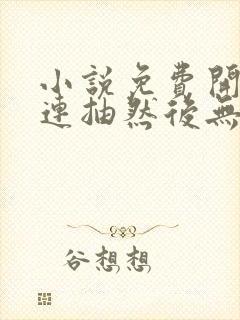 小說免費閱
連抽然後無
谷想想